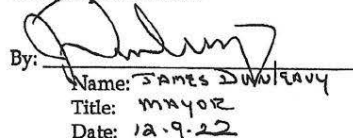 By:
Name: JAMES DUNLEAVY
Title: MAYOR
Date: 12.9.22